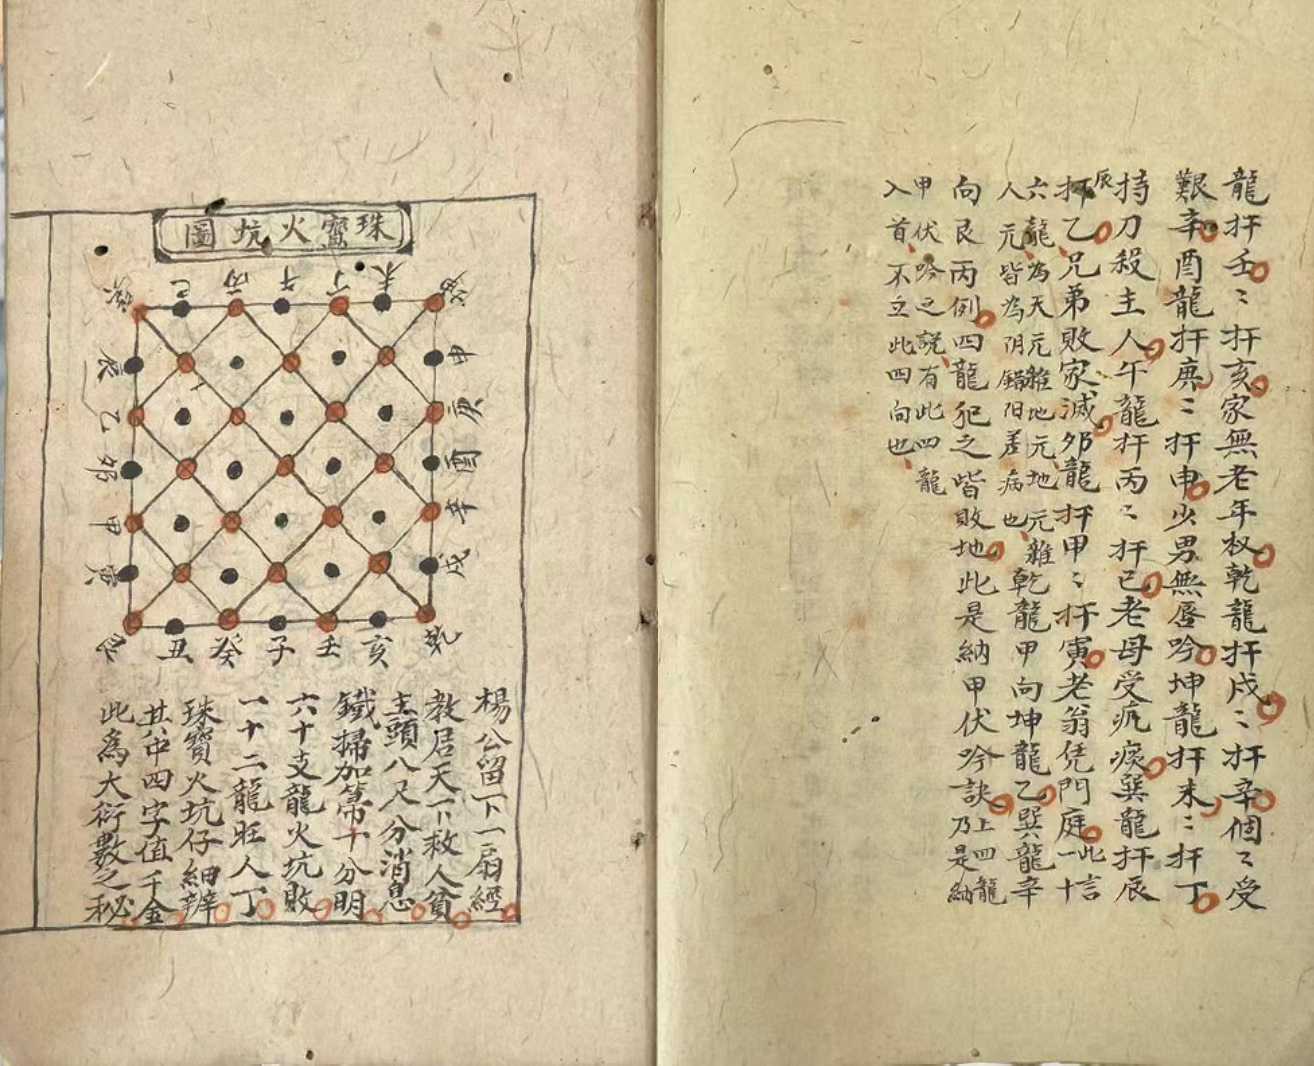 龍扦壬〻扦亥家無老年奴乾龍扦戌〻扦辛個〻受
艱辛酉龍扦庚〻扦申少男無唇吟坤龍扦未〻扦丁
持刀殺主人午龍扦丙〻扦巳老母受疠痰巽龍扦辰
辰
扦乙兄弟敗家滅夘龍扦甲〻扦寅老翁凭門庭
此言
一十
六龍為天元龍地元地元雜
人元皆為阴錯阳差病也
乾龍甲向坤龍乙巽龍辛
向艮丙例四龍犯之皆敗地此是納甲伏吟訣
上四龍
乃是納
甲伏吟之説有此四龍
入首不立此四向也
珠寳火坑圖
巳
丙
午
丁
未
辰
乙
夘
甲
寅
申
庚
酉
辛
戌
丑
癸
子
壬
亥
乾
楊公留下一扇經
教居天下救人貧
主頭八尺分消息
鐵掃加箒十分明
六十支龍火坑敗
一十二龍旺人丁
珠寶火坑仔細辨
其中四字值千金
此為大衍數之秘